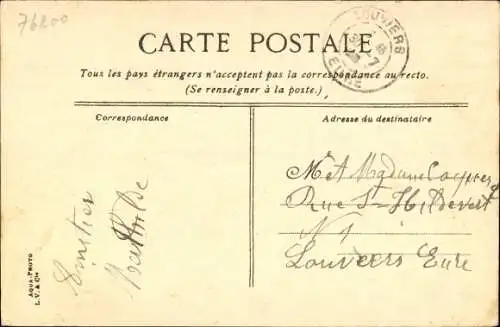 76200
LOUVIERS
EURE
CARTE POSTALE
Tous les pays étrangers n'acceptent pas la correspondance au recto.
(Se renseigner à la poste.)
Correspondance
Adresse du destinataire
M et Madame
Rue St Hildevert
N 1
Louviers Eure
Mathilde
AQUA-PHOTO
L. V. & Cie